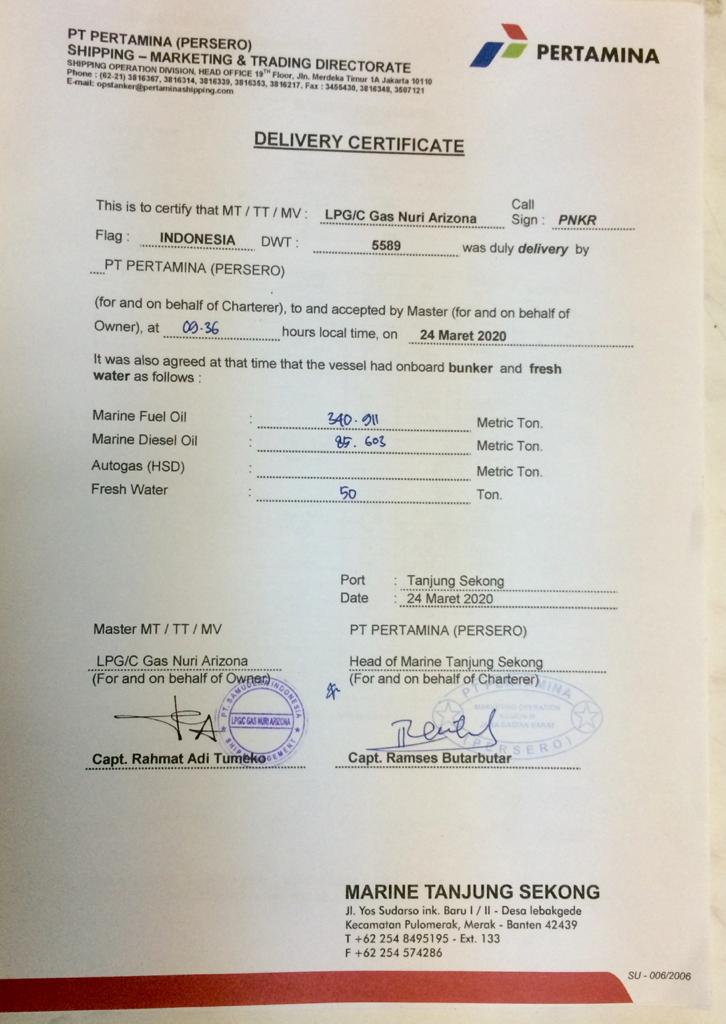 PT PERTAMINA (PERSERO)
SHIPPING – MARKETING & TRADING DIRECTORATE
SHIPPING OPERATION DIVISION, HEAD OFFICE 19TH Floor, Jln. Merdeka Timur 1A Jakarta 10110
Phone : (62-21) 3816367, 3816314, 3816339, 3816353, 3816217, Fax : 3455430, 3816348, 3507121
E-mail: opstanker@pertaminashipping.com
PERTAMINA
DELIVERY CERTIFICATE
This is to certify that MT / TT / MV : LPG/C Gas Nuri Arizona Call Sign : PNKR
Flag : INDONESIA DWT : 5589 was duly delivery by
PT PERTAMINA (PERSERO)
(for and on behalf of Charterer), to and accepted by Master (for and on behalf of
Owner), at 09.36 hours local time, on 24 Maret 2020
It was also agreed at that time that the vessel had onboard bunker and fresh
water as follows :
Marine Fuel Oil : 340.911 Metric Ton.
Marine Diesel Oil : 85.603 Metric Ton.
Autogas (HSD) : Metric Ton.
Fresh Water : 50 Ton.
Port : Tanjung Sekong
Date : 24 Maret 2020
Master MT / TT / MV
LPG/C Gas Nuri Arizona
(For and on behalf of Owner)
PT SAMUDERA INDONESIA
LPG/C GAS NURI ARIZONA
SHIP MANAGEMENT
Capt. Rahmat Adi Tumeko
PT PERTAMINA (PERSERO)
Head of Marine Tanjung Sekong
(For and on behalf of Charterer)
PT PERTAMINA
MARINE OPERATION
REGION III
(PERSERO)
Capt. Ramses Butarbutar
MARINE TANJUNG SEKONG
Jl. Yos Sudarso ink. Baru I / II - Desa lebakgede
Kecamatan Pulomerak, Merak - Banten 42439
T +62 254 8495195 - Ext. 133
F +62 254 574286
SU - 006/2006